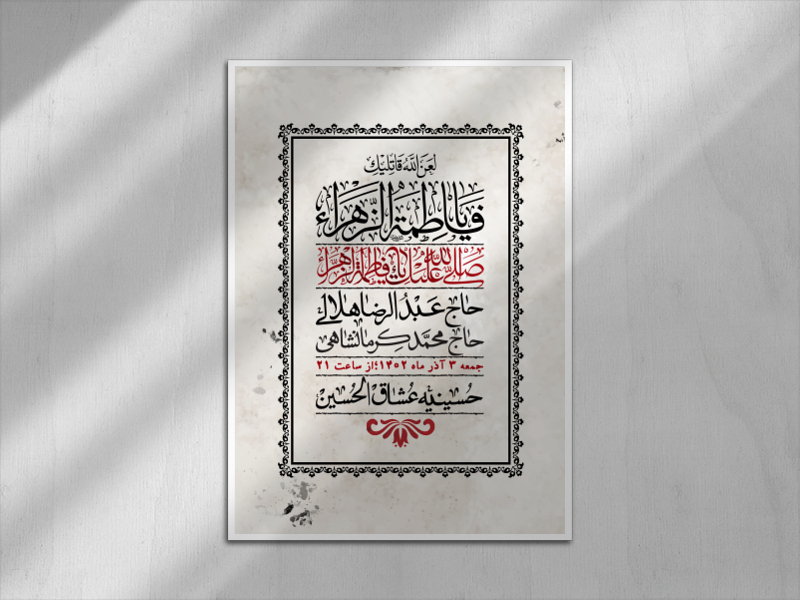 لَعَنَ اللهُ قاتِلیكِ
یا فاطِمَةُ الزَّهراء
صَلَّی اللهُ عَلَیْكِ یا فاطِمَةُ الزَّهراء
حاج عَبْدُالرضا هلالی
حاج محمَّد کرمانشاهی
جمعه ۳ آذر ماه ۱۴۰۲؛از ساعت ۲۱
حُسینیّه عُشّاقُ الحُسین